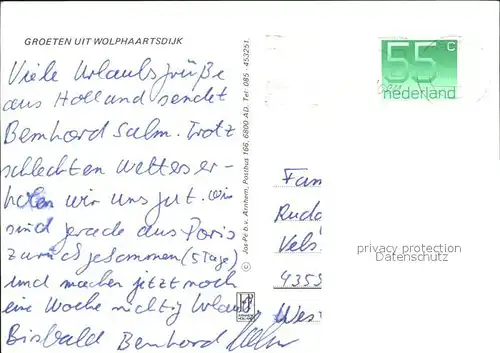 GROETEN UIT WOLPHAARTSDIJK
Viele Urlaubsgrüße
aus Holland sendet
Bernhard Salm. Trotz
schlechten Wetters er-
holen wir uns gut. Wir
sind gerade aus Paris
zurückgekommen (5 Tage)
und machen jetzt noch
eine Woche richtig Urlaub
Bis bald Bernhard
© Jos-Pé b.v. Arnhem, Postbus 166, 6800 AD. Tel: 085 - 453251.
55 c
nederland
Fam
Rudo
Vels.
4355
Wes
privacy protection
Datenschutz